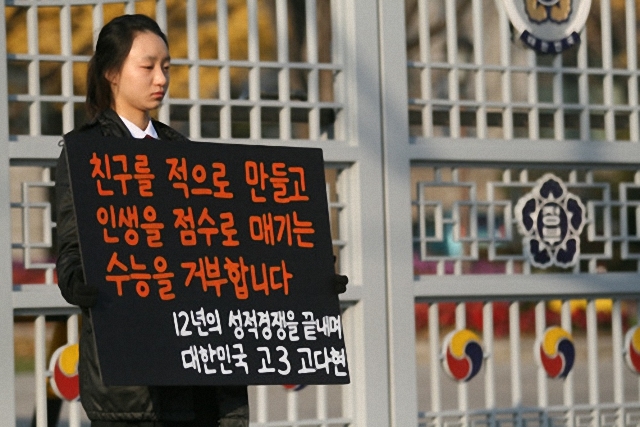 친구를 적으로 만들고
인생을 점수로 매기는
수능을 거부합니다
12년의 성적경쟁을 끝내며
대한민국 고3 고다현
정부